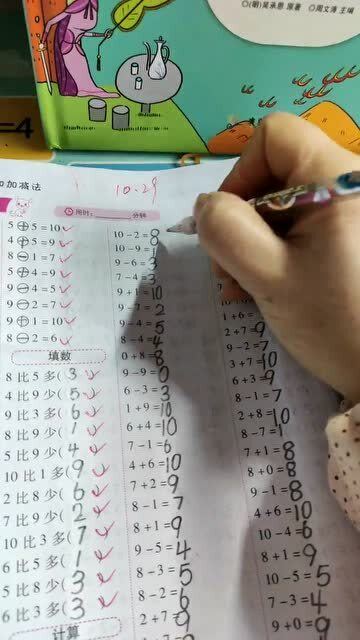 ◎(明)吴承恩 原著 ◎周文涛 主编
=4
加减法
10.29
用时: 分钟
5⊕5=10
4⊕5=9
8⊖1=7
5⊕4=9
9⊖4=5
9⊖2=7
9⊕1=10
8⊖2=6
填数
8比5多(3
4比9少(5
9比3多(6
8比9少(1
5比9少(4
10比1多(9
2比8少(6
7比9少(2
10比3多(7
6比5多(1
5比8少(3
6比3多(3
计算
10-2=8
10-9=1
9-6=3
7-4=3
9+1=10
9-7=2
9-4=5
8-4=4
0+8=8
9-9=0
6-3=3
1+9=10
6+4=10
7-1=6
4+6=10
7+2=9
8-1=7
8+1=9
9-5=4
8-3=5
8-2=6
2+7=9
1+6=7
2+7=9
9-2=7
3+7=10
6+3=9
8-1=7
2+8=10
8-7=1
7+1=8
8+0=8
9-1=8
4+6=10
10-4=6
8+1=9
10-5=5
7-3=4
9+0=9